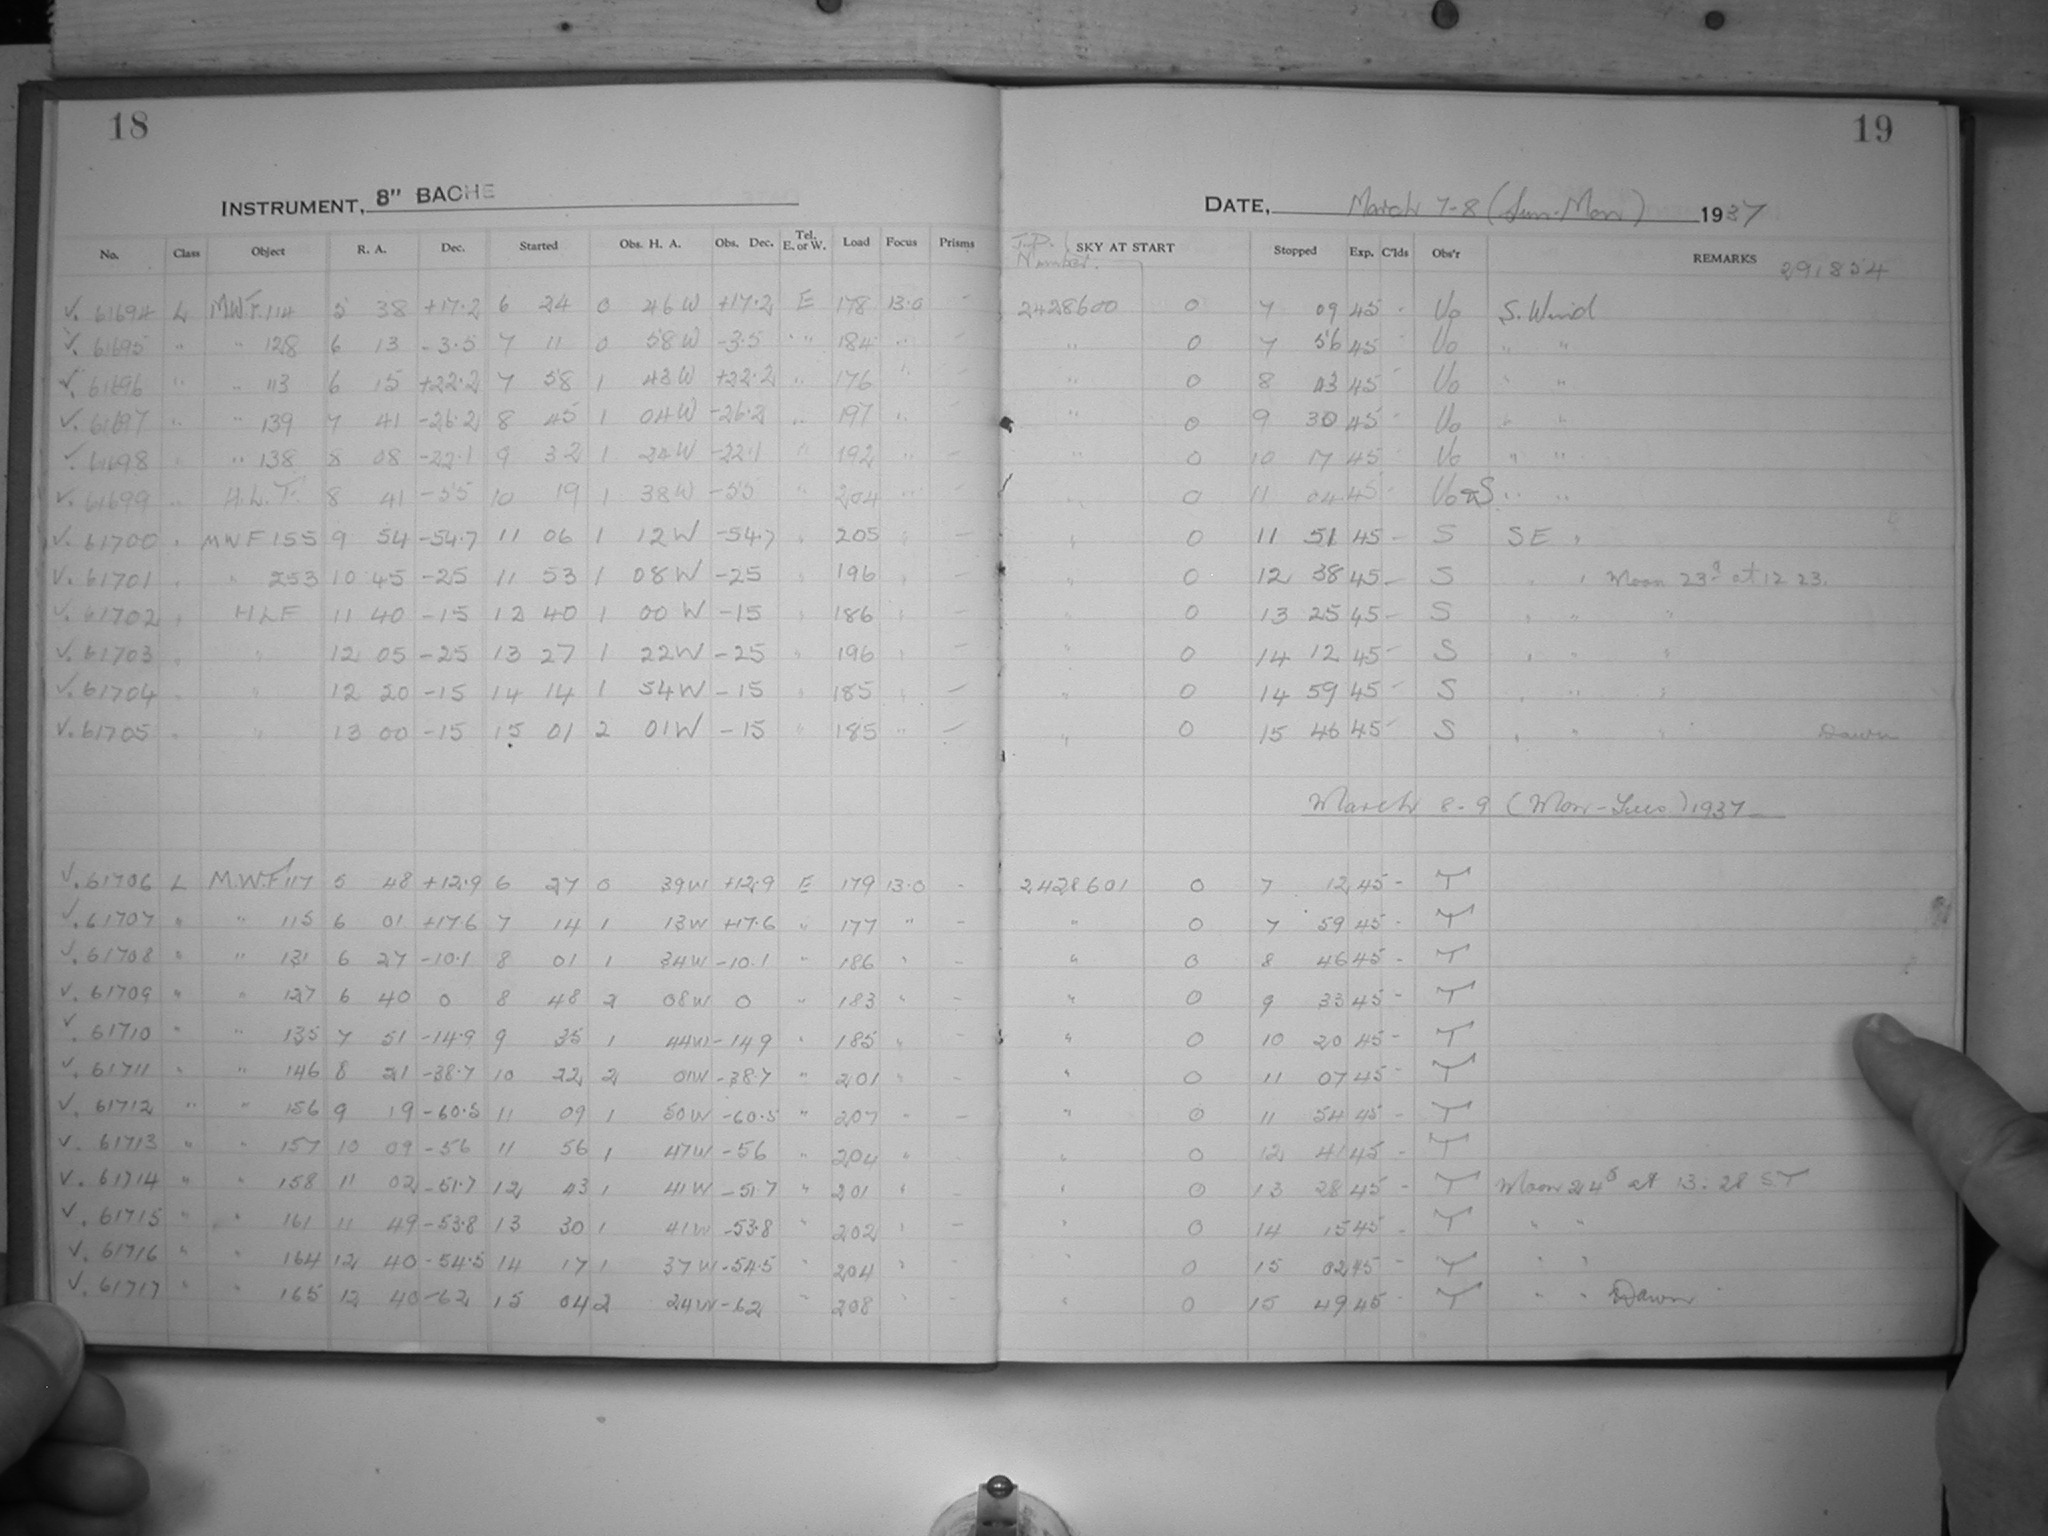 18
19
INSTRUMENT, 8" BACHE
DATE, March 7-8 (Sun-Mon) 1937
No. Class Object R. A. Dec. Started Obs. H. A. Obs. Dec. Tel. E. or W. Load Focus Prisms J.D. Number. SKY AT START Stopped Exp. C'lds Obs'r REMARKS 291854
✓. 61694 L M.W.F. 114 5 38 +17.2 6 24 0 46 W +17.2 E 178 13.0 - 2428600 0 7 09 45 - Uo S. Wind
✓. 61695 " " 128 6 13 -3.5 7 11 0 58 W -3.5 " " 184 " " 0 7 56 45 Uo " "
✓. 61696 " " 113 6 15 +22.2 7 58 1 43 W +22.2 " 176 " " 0 8 43 45 - Uo " "
✓. 61697 " " 139 7 41 -26.2 8 45 1 04 W -26.2 " 197 " " 0 9 30 45 - Uo " "
✓. 61698 " " 138 8 08 -22.1 9 32 1 24 W -22.1 " 192 " - " 0 10 17 45 - Uo " "
✓. 61699 " H.L.T. 8 41 -55 10 19 1 38 W -55 " 204 " - " 0 11 04 45 - Uo & S " "
✓. 61700 " MWF 155 9 54 -54.7 11 06 1 12 W -54.7 " 205 " - " 0 11 51 45 - S SE "
✓. 61701 " " 253 10 45 -25 11 53 1 08 W -25 " 196 " - " 0 12 38 45 - S " " Moon 23d at 12 23.
✓. 61702 " HLF 11 40 -15 12 40 1 00 W -15 " 186 " - " 0 13 25 45 - S " " "
✓. 61703 " " 12 05 -25 13 27 1 22 W -25 " 196 " - " 0 14 12 45 - S " " "
✓. 61704 " " 12 20 -15 14 14 1 54 W -15 " 185 " - " 0 14 59 45 - S " " "
✓. 61705 " " 13 00 -15 15 01 2 01 W -15 " 185 " - " 0 15 46 45 - S " " " Dawn
March 8-9 (Mon-Tues) 1937
✓. 61706 L M.W.F 117 5 48 +12.9 6 27 0 39 W +12.9 E 179 13.0 - 2428601 0 7 12 45 - T
✓. 61707 " " 115 6 01 +17.6 7 14 1 13 W +17.6 " 177 " - " 0 7 59 45 - T
✓. 61708 " " 131 6 27 -10.1 8 01 1 34 W -10.1 " 186 " - " 0 8 46 45 - T
✓. 61709 " " 127 6 40 0 8 48 2 08 W 0 " 183 " - " 0 9 33 45 - T
✓. 61710 " " 135 7 51 -14.9 9 35 1 44 W -14.9 " 185 " - " 0 10 20 45 - T
✓. 61711 " " 146 8 21 -38.7 10 22 2 01 W -38.7 " 201 " - " 0 11 07 45 - T
✓. 61712 " " 156 9 19 -60.5 11 09 1 50 W -60.5 " 207 " - " 0 11 54 45 - T
✓. 61713 " " 157 10 09 -56 11 56 1 47 W -56 " 204 " - " 0 12 41 45 - T
✓. 61714 " " 158 11 02 -51.7 12 43 1 41 W -51.7 " 201 " - " 0 13 28 45 - T Moon 24d at 13. 28 ST
✓. 61715 " " 161 11 49 -53.8 13 30 1 41 W -53.8 " 202 " - " 0 14 15 45 - T " "
✓. 61716 " " 164 12 40 -54.5 14 17 1 37 W -54.5 " 204 " - " 0 15 02 45 - T " "
✓. 61717 " " 165 12 40 -62 15 04 2 24 W -62 " 208 " - " 0 15 49 45 - T " " Dawn